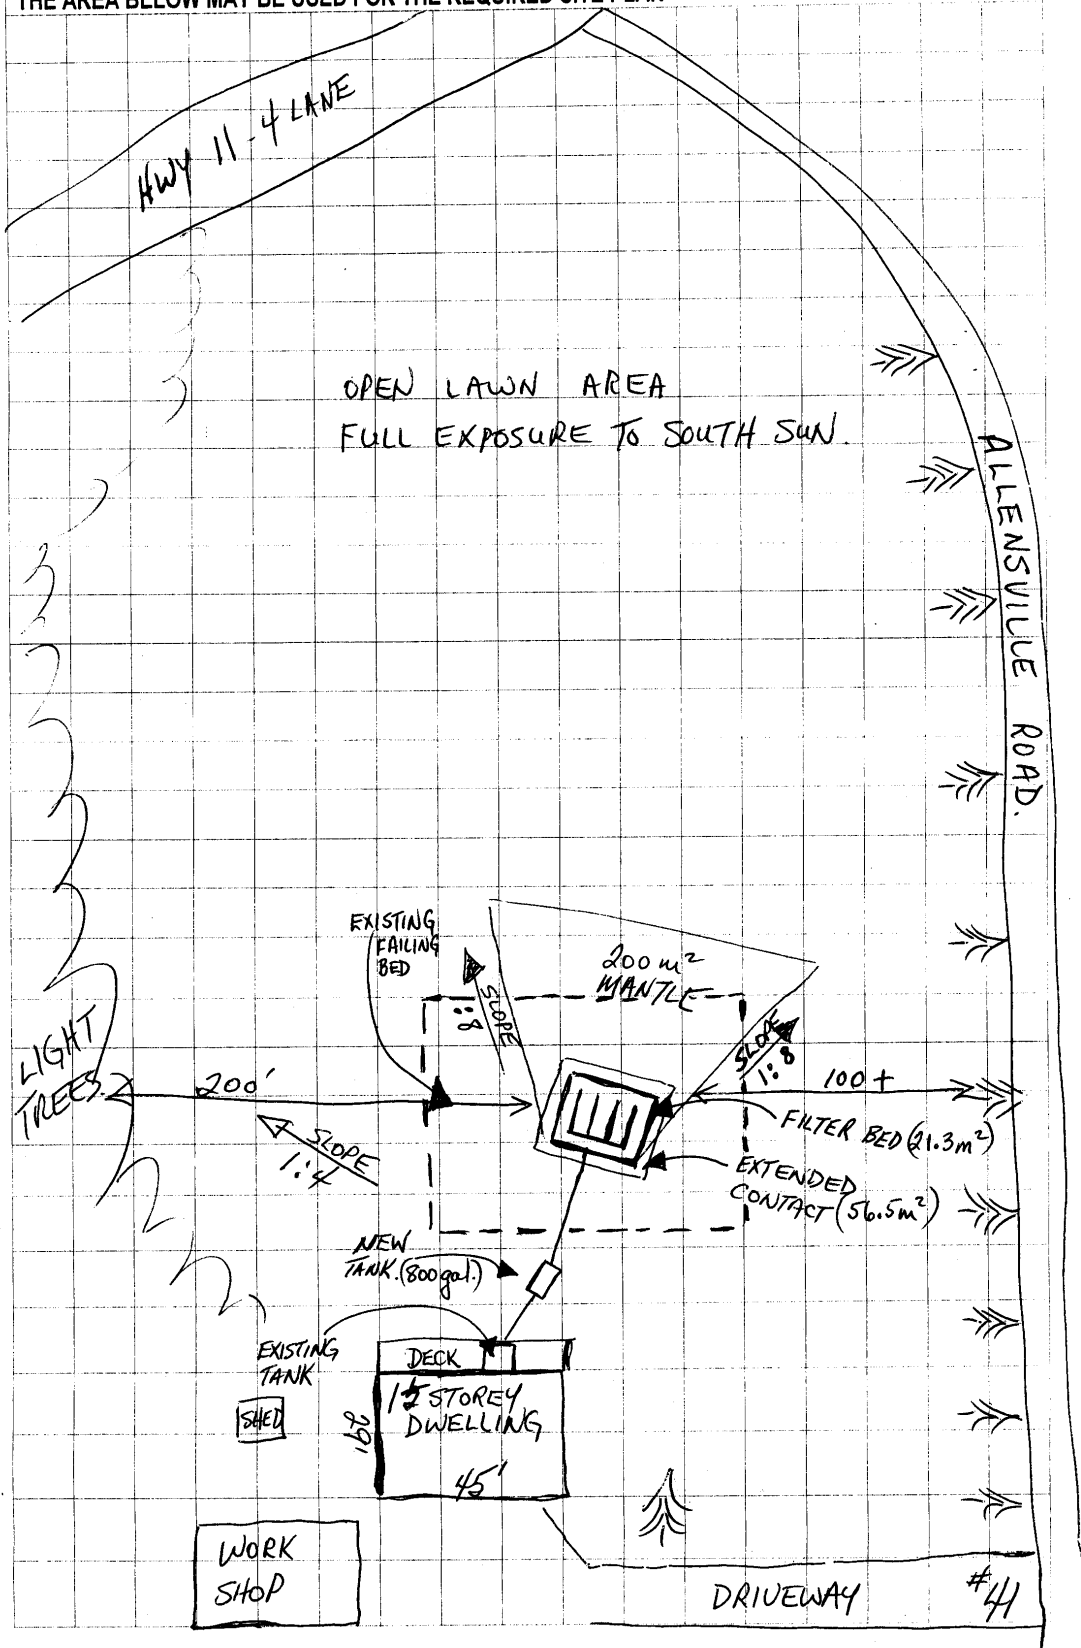 THE AREA BELOW MAY BE USED FOR THE REQUIRED SITE PLAN
HWY 11-4 LANE
OPEN LAWN AREA
FULL EXPOSURE TO SOUTH SUN.
ALLENSVILLE ROAD.
EXISTING
FAILING
BED
200 m²
MANTLE
SLOPE
1:8
SLOPE
1:8
LIGHT
TREES
200'
100+
SLOPE
1:4
FILTER BED (21.3m²)
EXTENDED
CONTACT (56.5m²)
NEW
TANK. (800gal.)
EXISTING
TANK
DECK
SHED
1½ STOREY
DWELLING
29'
45'
WORK
SHOP
DRIVEWAY
#41